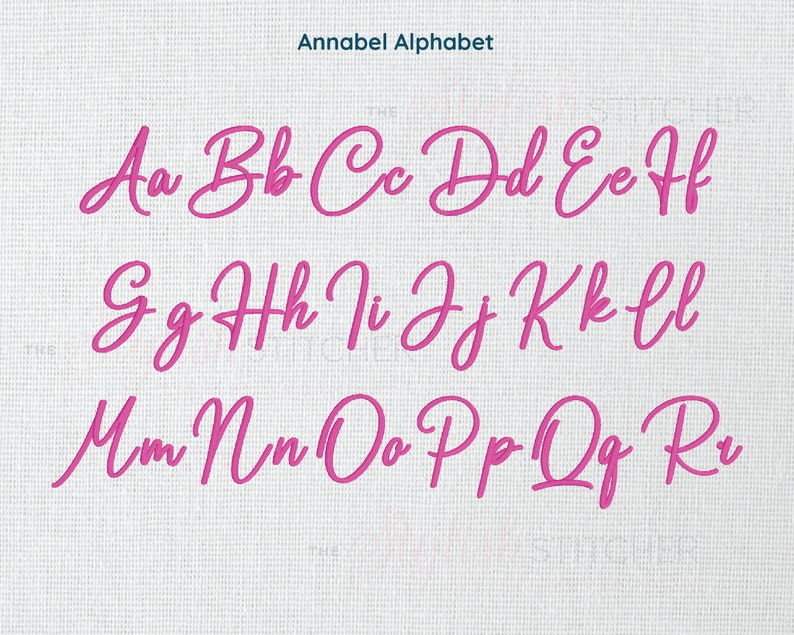 Annabel Alphabet
THE Stylish STITCHER
Aa Bb Cc Dd Ee Ff
Gg Hh Ii Jj Kk Ll
THE Stylish STITCHER
Mm Nn Oo Pp Qq Rr
THE Stylish STITCHER